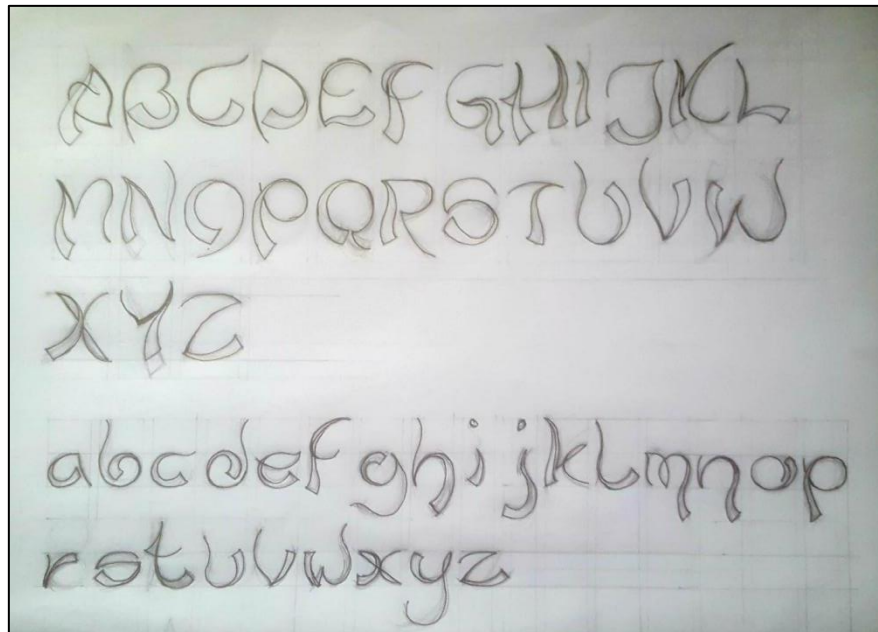 ABCDEFGHIJKL
MNOPQRSTUVW
XYZ
abcdefghijklmnop
rstuvwxyz